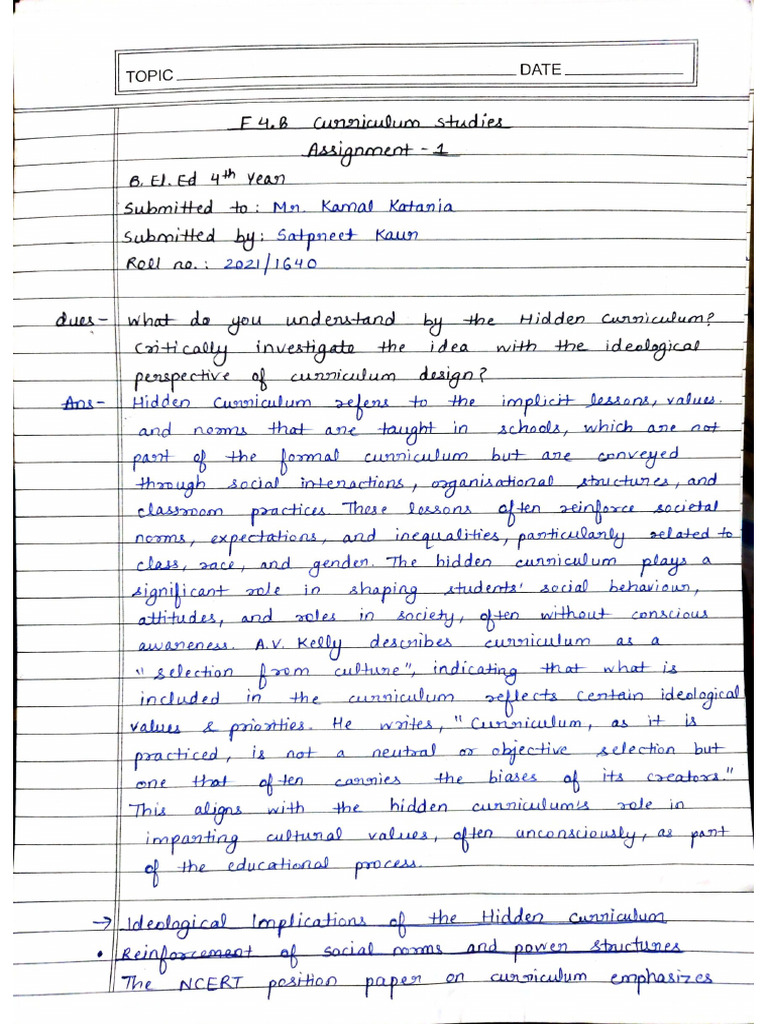 TOPIC DATE
F 4.B Curriculum Studies
Assignment - 1
B. El. Ed 4th Year
Submitted to : Mr. Kamal Katania
Submitted by : Satpreet Kaur
Roll no. : 2021/1640
Ques - What do you understand by the Hidden Curriculum?
Critically investigate the idea with the ideological
perspective of curriculum design?
Ans - Hidden Curriculum refers to the implicit lessons, values.
and norms that are taught in schools, which are not
part of the formal curriculum but are conveyed
through social interactions, organisational structures, and
classroom practices. These lessons often reinforce societal
norms, expectations, and inequalities, particularly related to
class, race, and gender. The hidden curriculum plays a
significant role in shaping students' social behaviour,
attitudes, and roles in society, often without conscious
awareness. A.V. Kelly describes curriculum as a
"selection from culture", indicating that what is
included in the curriculum reflects certain ideological
values & priorities. He writes, "Curriculum, as it is
practiced, is not a neutral or objective selection but
one that often carries the biases of its creators."
This aligns with the hidden curriculum's role in
imparting cultural values, often unconsciously, as part
of the educational process.
→ Ideological Implications of the Hidden Curriculum
• Reinforcement of social norms and power structures
The NCERT position paper on curriculum emphasizes